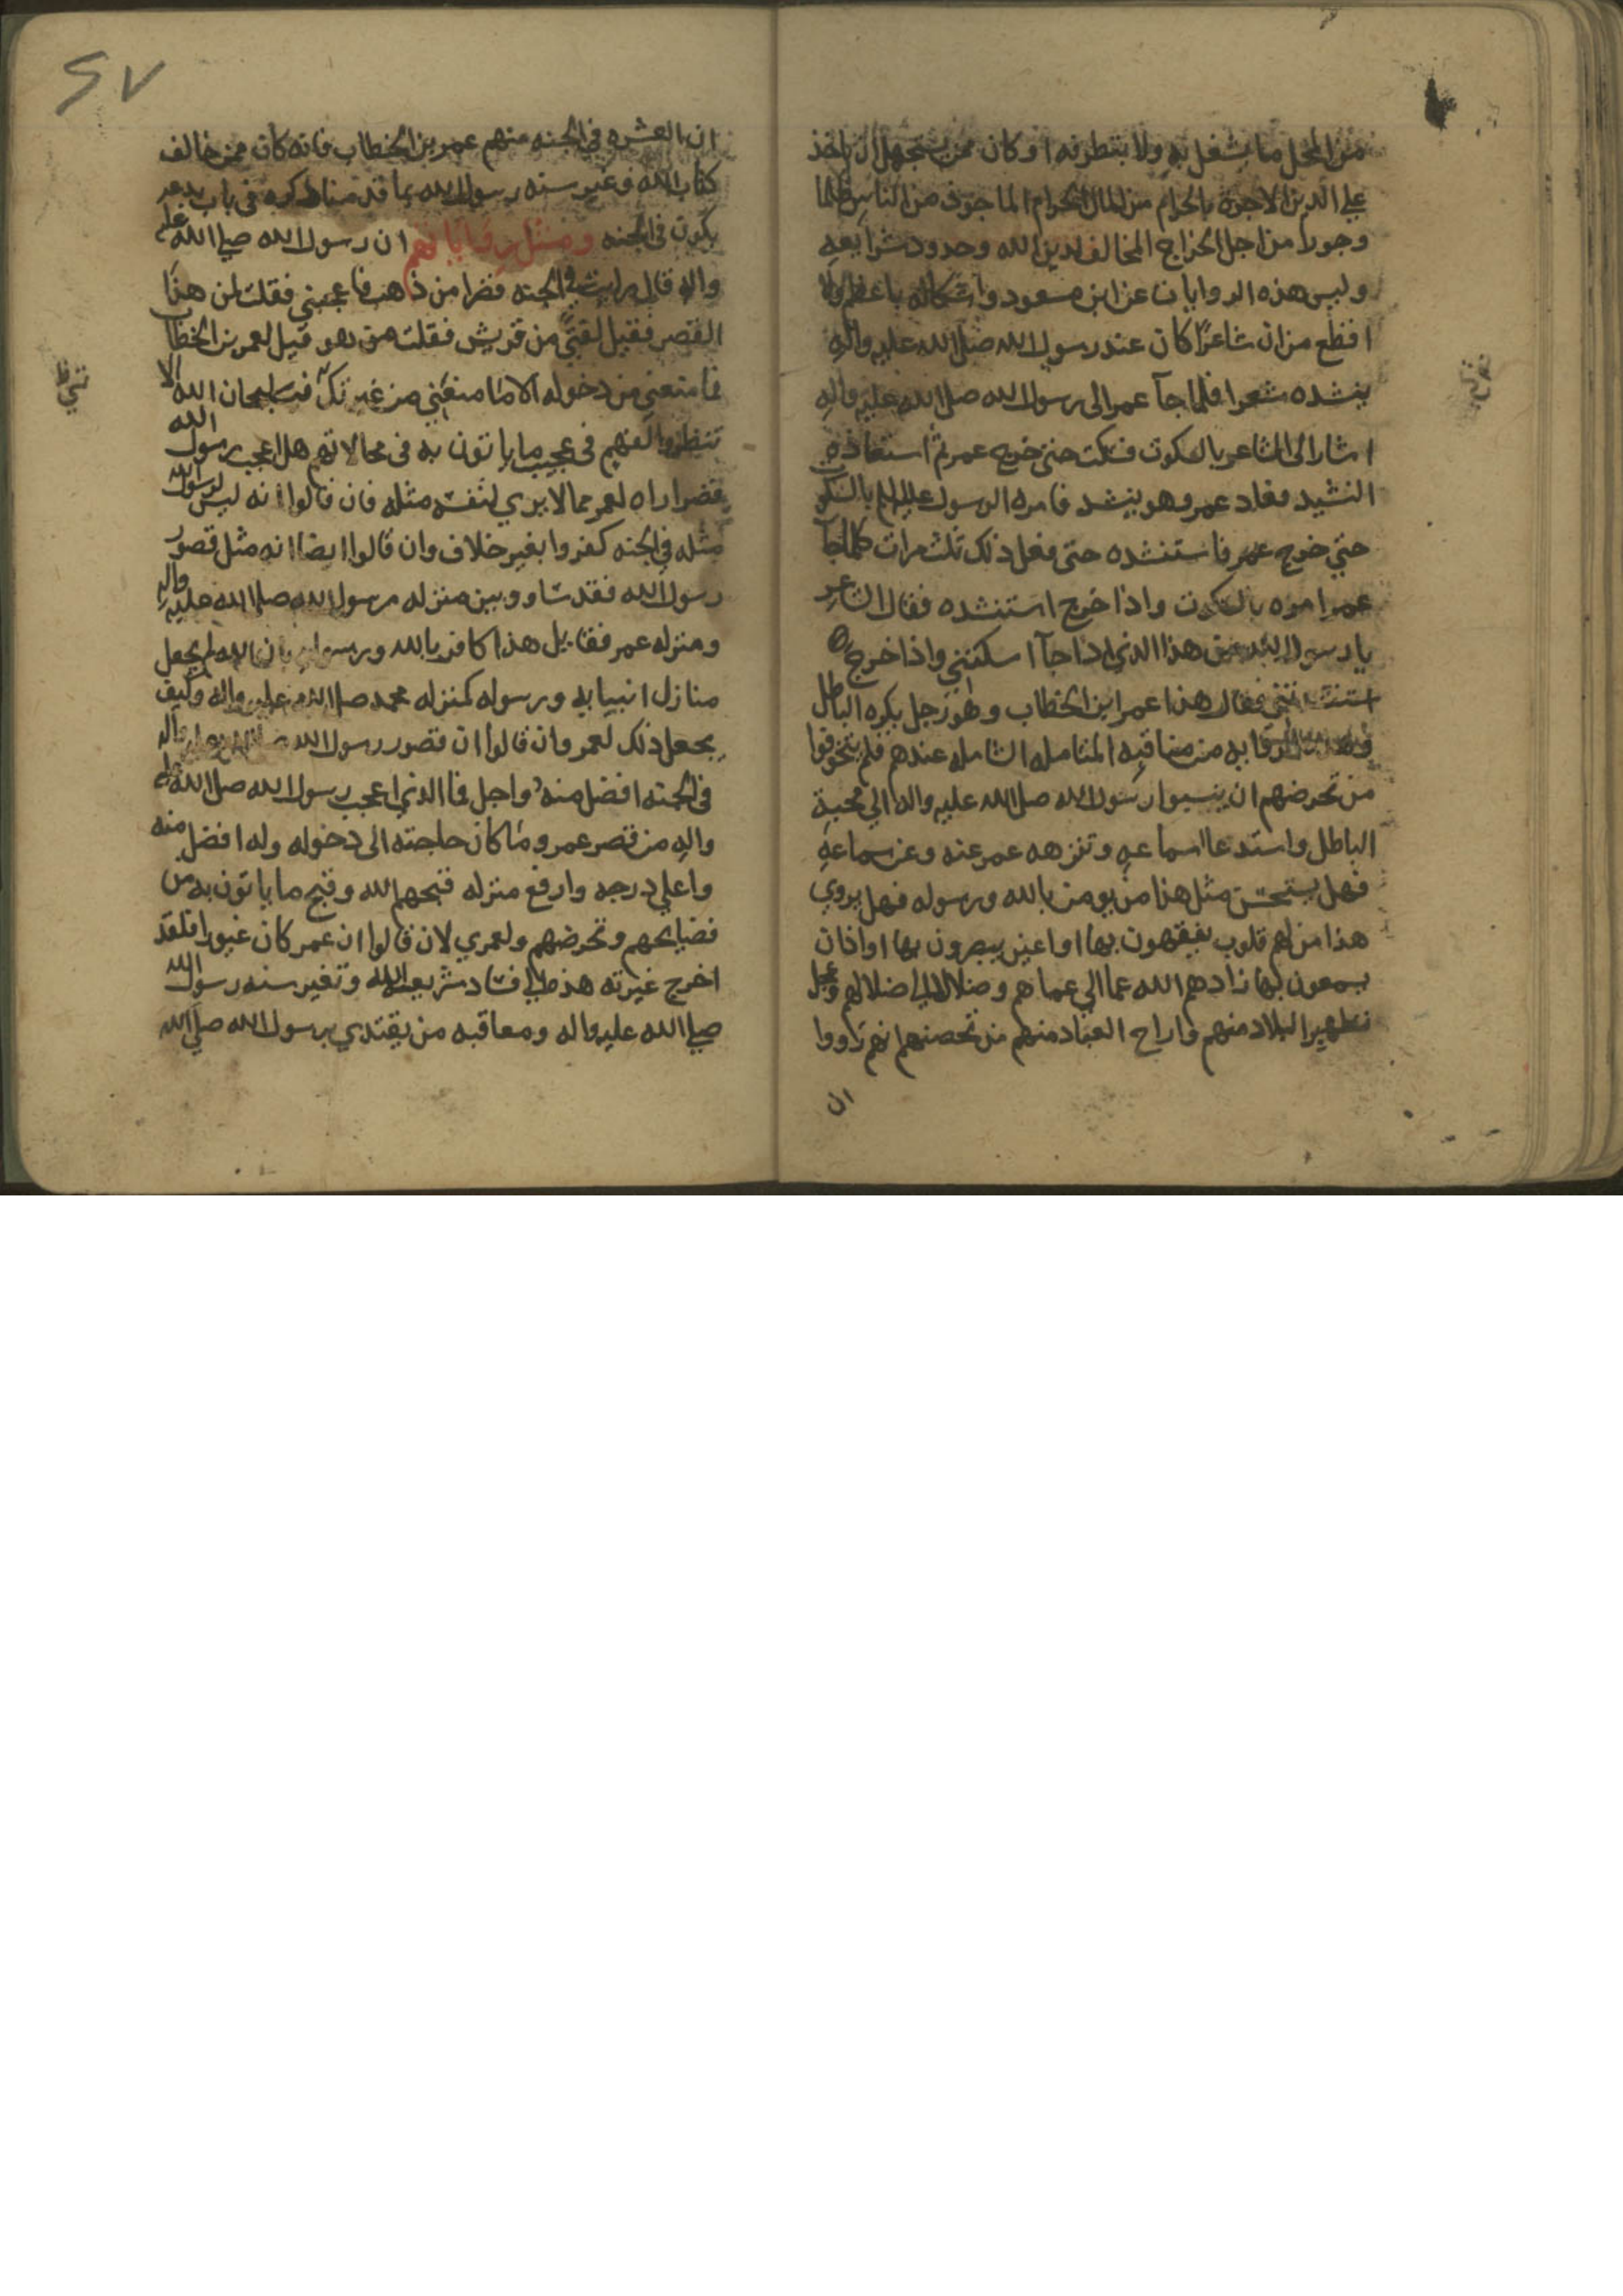 من المحل ما يشغل به ولا ينتظر به او كان ممن يستجهل ان ياخذ
علي الدين الاجرة بالحرام من المال الحرام الماجوذ من الناس ظلما
وجورا من اجل الخراج المخالف لدين الله وحدود شرايعه
وليس هذه الروايات عن ابن مسعود واشكاله باعظم ولا
افظع من ان شاعرا كان عند رسول الله صلى الله عليه واله
ينشده شعرا فلما جآ عمر الى رسول الله صلى الله عليه واله
اشار الى الشاعر بالسكوت فسكت حتى خرج عمر ثم استعاذه
النشيد فعاد عمر وهو ينشد فامره الرسول عليه السلم بالسكوت
حتي خرج عمر فاستنشده حتى فعل ذلك ثلث مرات كلما جآ
عمر امره بالسكوت واذا خرج استنشده فقال الشاعر
يا رسول الله من هذا الذي اذا جآ اسكتني واذا خرج
استنشدتني فقال هذا عمر ابن الخطاب وهو رجل يكره الباطل
من مناقبه الشامله عندهم فلم يتخوفوا
من تخرصهم ان ينسبوا رسول الله صلى الله عليه واله الي محبة
الباطل واستدعا اسماعه وتنزهه عمر عنه وعن سماعه
فهل يستحسن مثل هذا من يومن بالله ورسوله فهل يروي
هذا من لهم قلوب يفقهون بها او اعين يبصرون بها او اذان
يسمعون بها زادهم الله عما الي عماهم وضلالا الي ضلالهم وعجل
تطهير البلاد منهم واراح العباد منهم من تخصنهم انهم رووا
ان
٢٧
ان العشره في الجنه منهم عمر بن الخطاب فانه كان ممن خالف
كتاب الله وغير سنه رسول الله بما قدمنا ذكره في باب بدعه
يكون في الجنه ومثل رواياتهم ان رسول الله صلي الله عليه
واله قال رايت في الجنه قصرا من ذاهب فاعجبني فقلت لمن هذا
القصر فقيل لفتي من قريش فقلت من هو قيل لعمر بن الخطاب
فما منعني من دخوله الا ما منعني من غيرتك فسبحان الله الا
تنظروا لفهم في عجيب ما ياتون به في محالاتهم هل اعجب رسول الله
قصرا راه لعمر مما لا يري لنفسه مثله فان قالوا انه ليس لرسول الله
مثله في الجنه كفروا بغير خلاف وان قالوا ايضا انه مثل قصور
رسول الله فقد ساوو بين منزله رسول الله صلى الله عليه واله
ومنزله عمر فقايل هذا كافر بالله ورسوله بان الله لم يجعل
منازل انبيايه ورسوله كمنزله محمد صلى الله عليه واله وكيف
يجعل ذلك لعمر وان قالوا ان قصور رسول الله صلى الله عليه واله
في الجنه افضل منه واجل فما الذي اعجب رسول الله صلى الله عليه
واله من قصر عمر وما كان حاجته الى دخوله وله افضل منه
واعلي درجه وارفع منزله قبحهم الله وقبح ما ياتون به من
فضايحهم وتخرصهم ولعمري لان قالوا ان عمر كان غيورا فلقد
اخرج غيرته هذه الي فساد شريعه الله وتغير سنه رسول الله
صلي الله عليه واله ومعاقبه من يقتدي برسول الله صلي الله